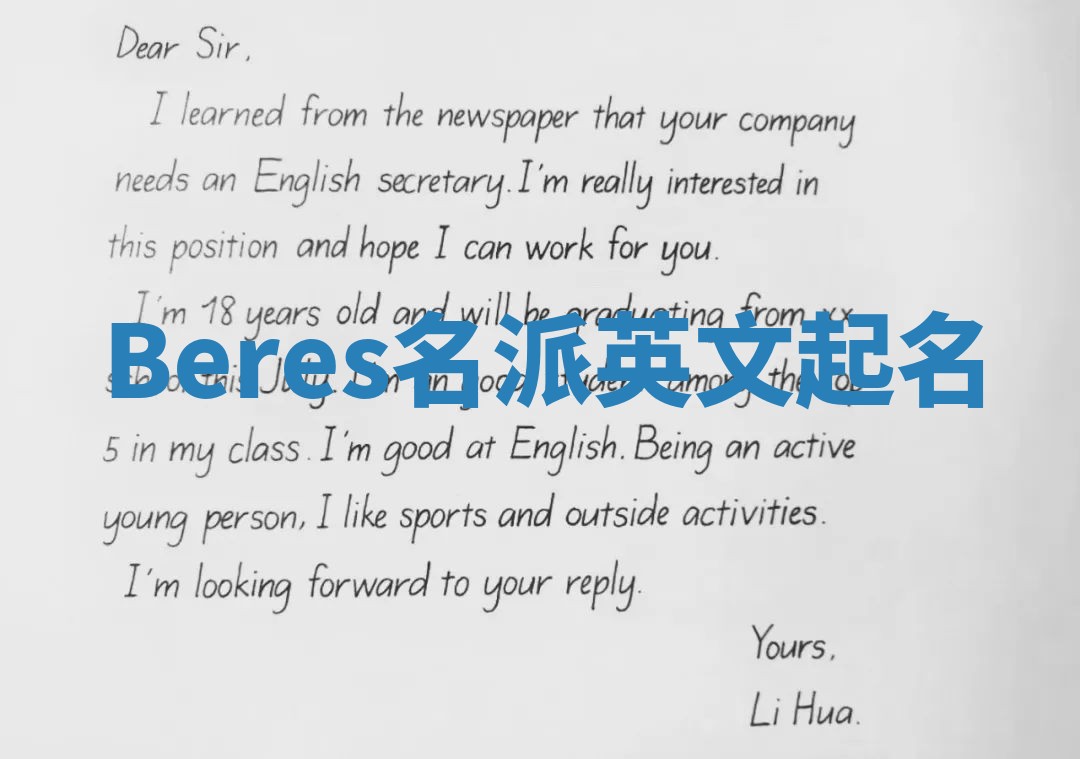 Dear Sir,
I learned from the newspaper that your company
needs an English secretary. I'm really interested in
this position and hope I can work for you.
I'm 18 years old and will be graduating from xx
Beres名派英文起名
school this July. I'm an good student among the top
5 in my class. I'm good at English. Being an active
young person, I like sports and outside activities.
I'm looking forward to your reply.
Yours,
Li Hua.